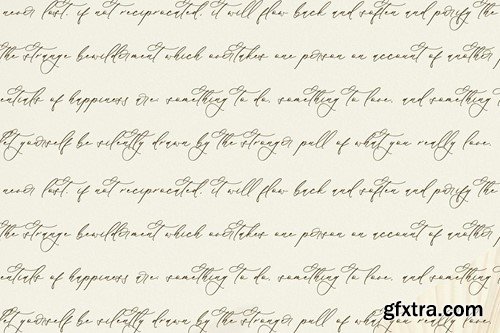 never lost. if not reciprocated, it will flow back and soften and purify the
the strange bewilderment which overtakes one person on account of another
entials of happiness are: something to do, something to love, and something
Let yourself be silently drawn by the stronger pull of what you really love.
never lost. if not reciprocated, it will flow back and soften and purify the
the strange bewilderment which overtakes one person on account of another
entials of happiness are: something to do, something to love, and something
Let yourself be silently drawn by the stronger pull of what you really love.
gfxtra.com